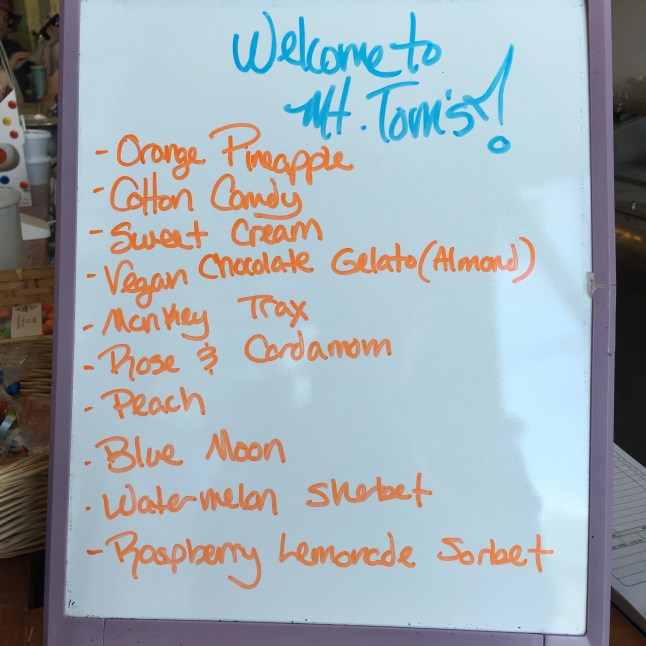 Welcome to
Mt. Tom's!
- Orange Pineapple
- Cotton Candy
- Sweet Cream
- Vegan Chocolate Gelato (Almond)
- Monkey Trax
- Rose & Cardamom
- Peach
- Blue Moon
- Watermelon Sherbet
- Raspberry Lemonade Sorbet